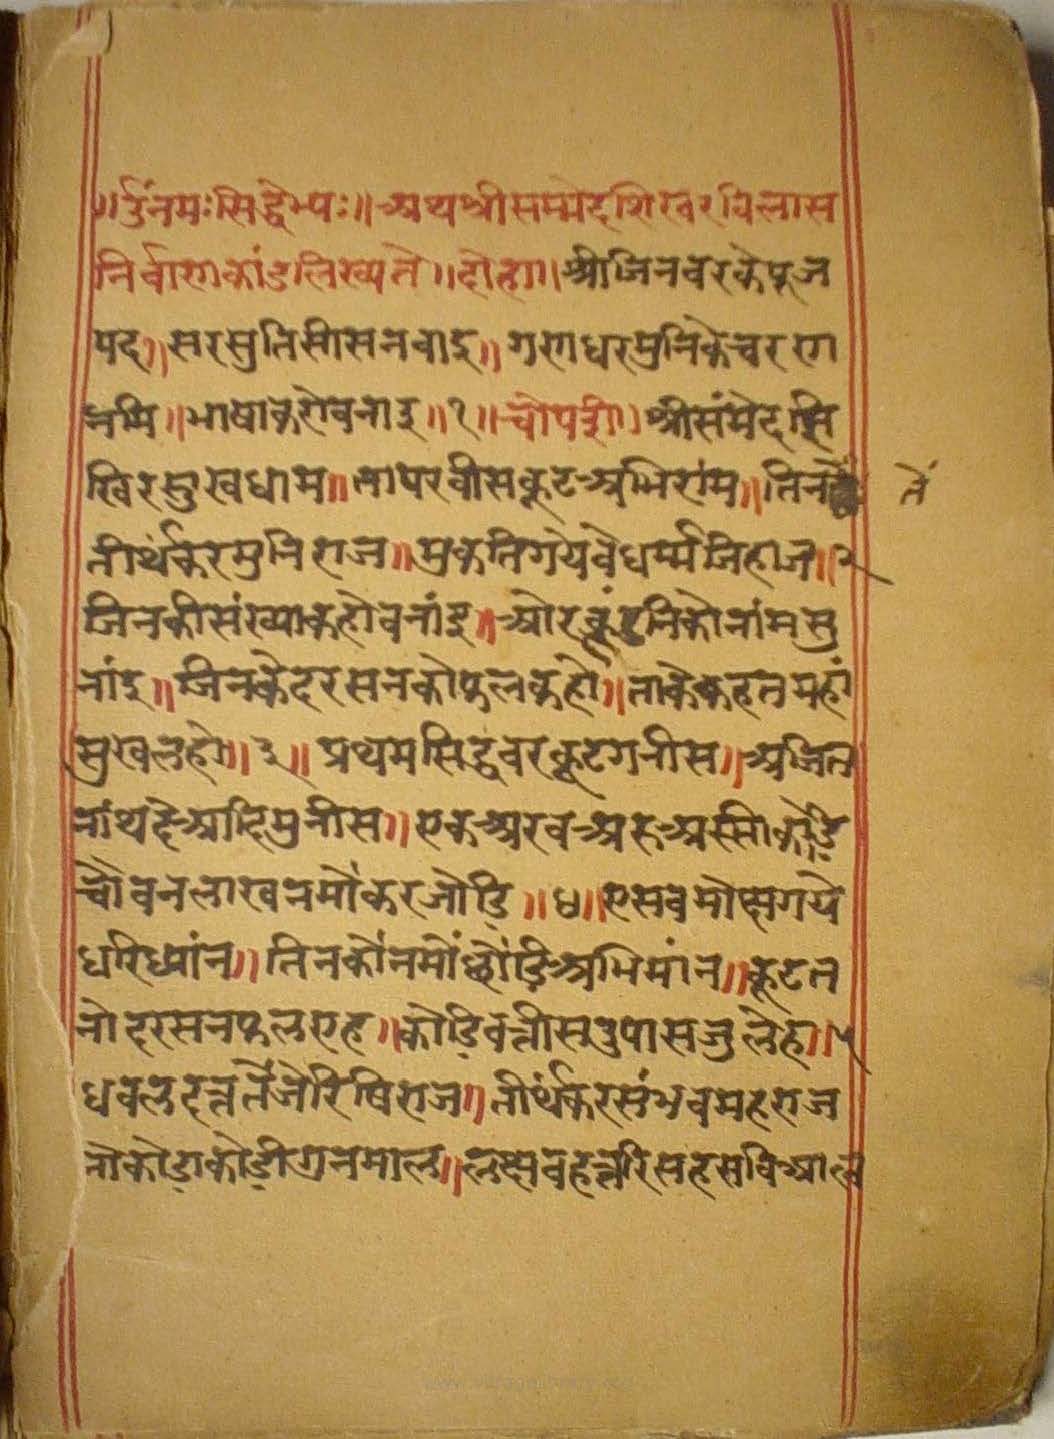 ॥ॐनमःसिद्धेभ्यः॥अथश्रीसम्मेदशिखरविलास
निर्वाणकांडलिख्यते॥दोहा॥श्रीजिनवरकेपूज
पद॥सरसुतिसीसनवाइ॥गणधरमुनिकेचरण
नमि॥भाषाकरोवनाइ॥१॥चौपई॥श्रीसंमेदसि
खिरसुखधाम॥तापरवीसकूटअभिरांम॥तिन तें
तीर्थंकरमुनिराज॥मुकतिगयेवैधर्म्मजिहाज॥२
जिनकीसंख्याकहोवनांइ॥औरकूंटनिकोनांमसु
नांइ॥जिनकेदरसनकोफलकहों॥ताकेकहतमहां
सुखलहों॥३॥प्रथमसिद्धवरकूटगनीस॥अजित
नांथहैआदिमुनीस॥एकअरवअरुअस्सीकोडि
चौवनलाखनमौंकरजोडि॥४॥एसवमोक्षगये
धरिध्यांन॥तिनकौंनमौंछोंडिअभिमांन॥कूटत
नोदरसनफलएह॥कोडिवत्तीसउपासजुलेह॥५
धवलदत्ततैंजेरिषिराज॥तीर्थंकरसंभवमहराज
नौकोडाकोडीगुनमाल॥लक्षवहत्तरिसहसविआल